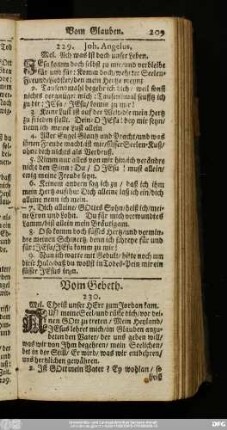 Vom Glauben. 209
229. Joh. Angelus.
Mel. Ach was ist doch unser Leben.
JEsu komm doch selbst zu mir/und verbleibe
für und für: Komm doch/wehrter Seelen-
Freund/Liebster/den mein Hertze meynt.
2. Tausendmahl begehr ich dich/ weil sonst
nichts vergnüget mich: Tausendmal seuffz ich
zu dir: JEsu/ JEsu/ komm zu mir!
3. Keine Lust ist auf der Welt/die mein Hertz
zu frieden stellt. Dein/ O JEsu! bey mir seyn/
nenn ich meine Lust allein
4. Aller Engel Glantz und Pracht/und was
ihnen Freude macht/ist mir/süsser Seelen-Kuß/
ohne dich nichts als Verdruß.
5. Nimm nur alles von mir hin/ich verändre
nicht den Sinn: Du/ O JEsu! must allein/
ewig meine Freude seyn.
6. Keinem andern sag ich zu/ daß ich ihm
mein Hertz aufthu: Dich alleine laß ich ein/dich
alleine nenn ich mein.
7. Dich alleine/ GOttes Sohn/heiß ich/mei-
ne Cron und Lohn. Du für mich verwundtes
Lamm/bist allein mein Bräutigam.
8. O so komm doch süsses Hertz/und vermin-
dre meinen Schmertz/ denn ich schreye für und
für: JEsu/JEsu komm zu mir!
9. Nun ich warte mit Gedult/ bitte noch um
diese Huld/daß du wollst in Todes-Pein mir ein
süsser JEsus seyn.
Vom Gebeth.
230.
Mel. Christ unser HErr zum Jordan kam.
AUf! meine Seel/und rüste dich/ vor dei-
nen GOtt zu treten/ Mein Heyland/
JEsus lehret mich/im Glauben anzu-
beten den Vater/ der uns geben will/
was wir von Ihm begehren/ mein Seelichen/
bet in der Still/ Er wirds/ was wir entbehren/
uns hertzlich gern gewähren.
2. Ist GOtt mein Vater? Ey wohlan/ so